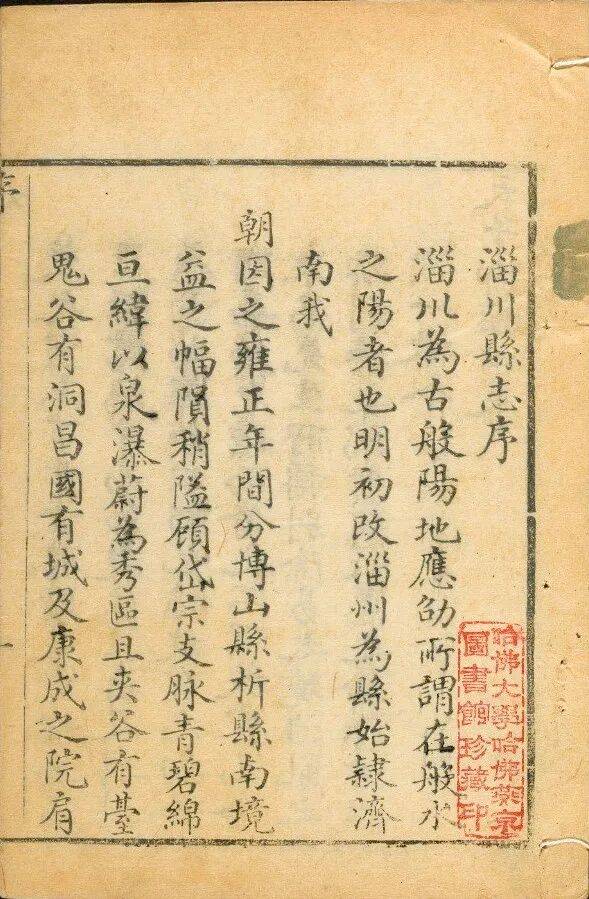 淄川縣志序
淄川為古般陽地應劭所謂在般水
之陽者也明初改淄州為縣始隸濟
南我
朝因之雍正年間分博山縣析縣南境
益之幅隕稍隘顧岱宗支脉青碧綿
亘緯以泉瀑蔚為秀區且夾谷有臺
鬼谷有洞昌國有城及康成之院肩
序
一
哈佛大學哈佛燕京
圖書館珍藏印